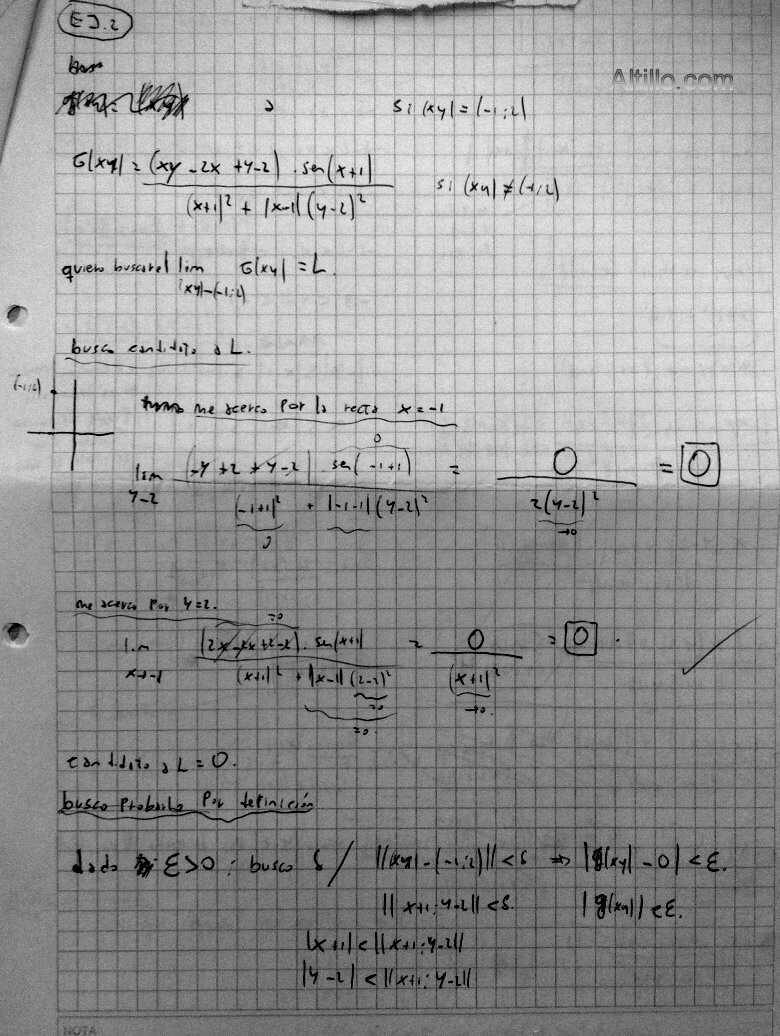 EJ.2
Altillo.com
si (xy) = (-1;2)
G(xy) = (xy - 2x + y - 2) . sen(x+1) / (x+1)² + |x-1| (y-2)² si (xy) ≠ (-1;2)
quiero buscar el lim G(xy) = L.
(xy)→(-1;2)
busco candidato a L.
(-1;2)
me acerco por la recta x = -1
0
lim (-y + 2 + y - 2) . sen(-1+1) / (-1+1)² + |-1-1| (y-2)² = 0 / 2(y-2)² = 0
y→2
0 →0
me acerco por y=2.
=0
lim (2x - 2x + 2 - 2) . sen(x+1) / (x+1)² + |x-1| (2-2)² = 0 / (x+1)² = 0 .
x→-1
=0 →0
=0
candidato a L = 0.
busco probarlo por definición
dado ε>0 : busco δ / ||(xy) - (-1;2)|| < δ ⇒ |g(xy) - 0| < ε.
||x+1; y-2|| < δ. |g(xy)| < ε.
|x+1| < ||x+1; y-2||
|y-2| < ||x+1; y-2||
NOTA